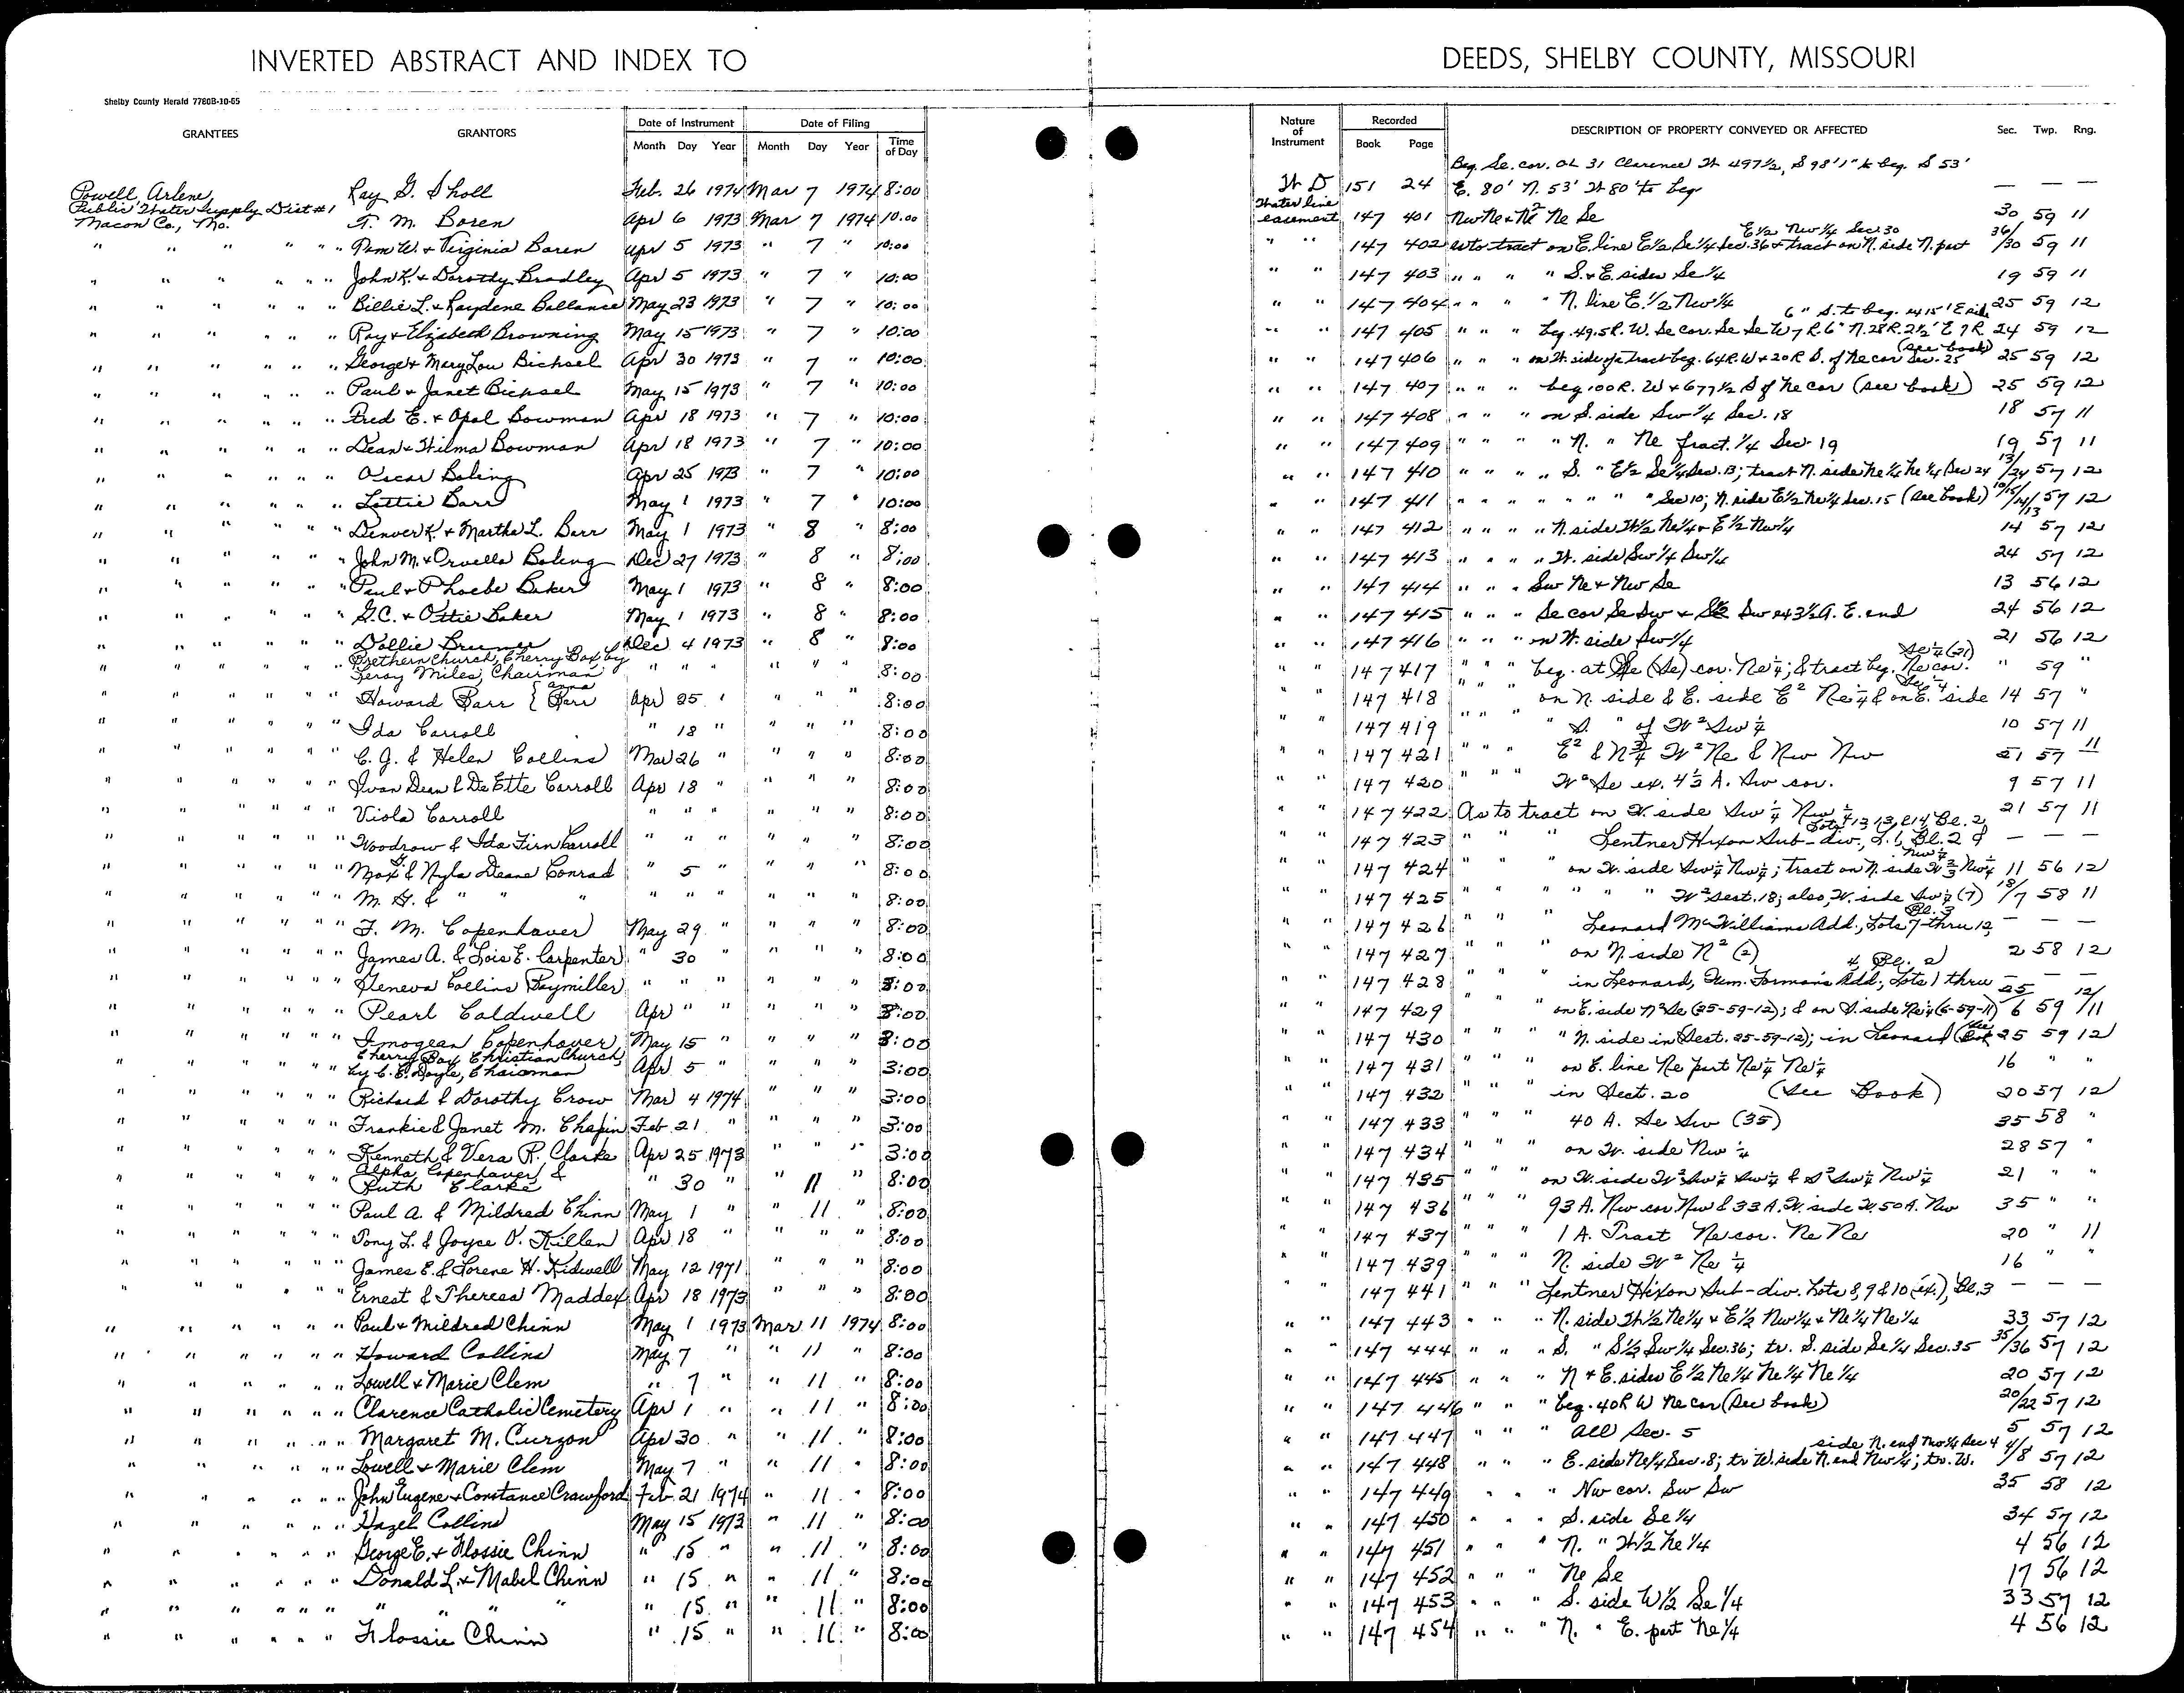 INVERTED ABSTRACT AND INDEX TO DEEDS, SHELBY COUNTY, MISSOURI
Shelby County Herald 7780B-10-65
GRANTEES GRANTORS Date of Instrument Date of Filing Nature of Instrument Recorded DESCRIPTION OF PROPERTY CONVEYED OR AFFECTED Sec. Twp. Rng.
Month Day Year Month Day Year Time of Day Book Page
Beg. Se. cor. OL 31 Clarence W 497½, S 98'1" to beg. S 53'
Powell, Arlene Ray G. Sholl Feb. 26 1974 Mar 7 1974 8:00 W D 151 24 E. 80' N. 53' W 80' to beg — — —
Public Water Supply Dist #1 Macon Co., Mo. F. M. Boren Apr 6 1973 Mar 7 1974 10:00 Water line easement 147 401 Nw Ne & N² Ne Se 30 59 11
" " " " " " Pam W. & Virginia Boren Apr 5 1973 " 7 " 10:00 " " 147 402 as to tract on E. line E½ Se¼ Sec. 36 & tract on N. side N. part E½ Nw¼ Sec. 30 36/30 59 11
" " " " " " John K. & Dorothy Bradley Apr 5 1973 " 7 " 10:00 " " 147 403 " " " " S. & E. sides Se¼ 19 59 11
" " " " " " Billie L. & Raydene Ballance May 23 1973 " 7 " 10:00 " " 147 404 " " " " N. line E. 1/2 Nw¼ 25 59 12
" " " " " " Roy & Elizabeth Browning May 15 1973 " 7 " 10:00 " " 147 405 " " " beg. 49.5 R. W. Se cor. Se Se W 7 R. 6" N. 28 R. 2½' E 7 R 6" S. to beg. 24 59 12
" " " " " " George & Mary Lou Bichsel Apr 30 1973 " 7 " 10:00 " " 147 406 " " " on W. side of a tract beg. 64 R. W & 20 R S. of Ne cor Sec. 25 (see book) 25 59 12
" " " " " " Paul & Janet Bichsel May 15 1973 " 7 " 10:00 " " 147 407 " " " beg 100 R. W & 677½ S of Ne cor (see book) 25 59 12
" " " " " " Fred E. & Opal Bowman Apr 18 1973 " 7 " 10:00 " " 147 408 " " " on S. side Sw¼ Sec. 18 18 57 11
" " " " " " Dean & Wilma Bowman Apr 18 1973 " 7 " 10:00 " " 147 409 " " " " N. " Ne fract. ¼ Sec. 19 19 57 11
" " " " " " Oscar Boling Apr 25 1973 " 7 " 10:00 " " 147 410 " " " " S. " E½ Se¼ Sec. 13; tract N. side Ne¼ Ne¼ Sec 24 13/24 57 12
" " " " " " Lottie Barr May 1 1973 " 7 " 10:00 " " 147 411 " " " " " " " Sec 10; N. side E½ Ne¼ Sec. 15 (see book) 10/15/14/13 57 12
" " " " " " Denver K. & Martha L. Barr May 1 1973 " 8 " 8:00 " " 147 412 " " " " N. side W½ Ne¼ & E½ Nw¼ 14 57 12
" " " " " " John M. & Orvella Boling Dec 27 1973 " 8 " 8:00 " " 147 413 " " " " W. side Sw¼ Sw¼ 24 57 12
" " " " " " Paul & Phoebe Baker May 1 1973 " 8 " 8:00 " " 147 414 " " " Sw Ne & Nw Se 13 56 12
" " " " " " G.C. & Ottie Baker May 1 1973 " 8 " 8:00 " " 147 415 " " " Se cor Se Sw & Sw ex 3½ A. E. end 24 56 12
" " " " " " Dollie Dec 4 1973 " 8 " 8:00 " " 147 416 " " " on W. side Sw¼ 21 56 12
" " " " " " Brethern Church, Cherry Box by Leroy Miles, Chairman " " " " " " 8:00 " " 147 417 " " " beg. at Se (Se) cor. Ne¼; & tract beg. Ne cor. Se¼ (21) " 59 "
" " " " " " Howard Barr { Anna Barr Apr 25 " " " " 8:00 " " 147 418 " " " on N. side & E. side E² Ne¼ & on E. side Se¼ 14 57 "
" " " " " " Ida Carroll " 18 " " " " 8:00 " " 147 419 " " " " S. " of W² Sw¼ 10 57 11
" " " " " " C. J. & Helen Collins Mar 26 " " " " 8:00 " " 147 421 " " " E² & N¾ W² Ne & Nw Nw 21 57 11
" " " " " " Ivan Dean & DeEtte Carroll Apr 18 " " " " 8:00 " " 147 420 " " " W² Se ex. 4⅓ A. Sw cor. 9 57 11
" " " " " " Viola Carroll " " " " " " 8:00 " " 147 422 As to tract on W. side Sw¼ Nw¼ 21 57 11
" " " " " " Woodrow & Ida Fern Carroll " " " " " " 8:00 " " 147 423 " " " Lentner Hixon Sub-div., L. 1, Bl. 2 & Lots 12, 13, & 14 Bl. 2 — — —
" " " " " " Max G. & Nyla Deane Conrad " 5 " " " " 8:00 " " 147 424 " " " on W. side Sw¼ Nw¼; tract on N. side W⅔ Nw¼ Nw¼ 11 56 12
" " " " " " M. G. & " " " " " " " " " 8:00 " " 147 425 " " " " " " W² Sect. 18; also, W. side Sw¼ (7) 18/7 58 11
" " " " " " F. M. Copenhaver May 29 " " " " 8:00 " " 147 426 " " " Leonard McWilliams Add., Lots 7 thru 12, Bl. 3 — — —
" " " " " " James A. & Lois E. Carpenter " 30 " " " " 8:00 " " 147 427 " " " on N. side N² (2) 2 58 12
" " " " " " Geneva Collins Peymiller " " " " " " 8:00 " " 147 428 " " " in Leonard, Wm. Forman's Add., Lots 1 thru 4 Bl. 2) — — —
" " " " " " Pearl Caldwell Apr " " " " " 8:00 " " 147 429 " " " on E. side N² Se (25-59-12); & on S. side Ne¼ (6-59-11) 25/6 59 12/11
" " " " " " Imogean Copenhaver May 15 " " " " 8:00 " " 147 430 " " " " N. side in Sect. 25-59-12); in Leonard (See Bk 25 59 12
" " " " " " Cherry Box Christian Church, by C. E. Doyle, Chairman Apr 5 " " " " 3:00 " " 147 431 " " " on E. line Ne part Ne¼ Ne¼ 16 " "
" " " " " " Richard & Dorothy Crow Mar 4 1974 " " " 3:00 " " 147 432 " " " in Sect. 20 (See Book) 20 57 12
" " " " " " Frankie & Janet M. Chapin Feb 21 " " " " 3:00 " " 147 433 " " " 40 A. Se Sw (35) 35 58 "
" " " " " " Kenneth & Vera R. Clarke Apr 25 1973 " " " 3:00 " " 147 434 " " " on W. side Nw¼ 28 57 "
" " " " " " Alpha Copenhaver & Ruth Clarke " 30 " " 11 " 8:00 " " 147 435 " " " on W. side W² Sw¼ Sw¼ & S² Sw¼ Nw¼ 21 " "
" " " " " " Paul A. & Mildred Chinn May 1 " " 11 " 8:00 " " 147 436 " " " 93 A. Nw cor Nw & 33 A. W. side W. 50 A. Nw 35 " "
" " " " " " Tony L. & Joyce V. Killen Apr 18 " " " " 8:00 " " 147 437 " " " 1 A. Tract Ne cor. Ne Ne 20 " 11
" " " " " " James E. & Lorene H. Kidwell May 12 1971 " " " 8:00 " " 147 439 " " " N. side W² Ne¼ 16 " "
" " " " " " Ernest & Theresa Maddex Apr 18 1973 " " " 8:00 " " 147 441 " " " Lentner Hixon Sub-div. Lots 8, 9 & 10 (ex.), Bl. 3 — — —
" " " " " " Paul & Mildred Chinn May 1 1973 Mar 11 1974 8:00 " " 147 443 " " " N. side W½ Ne¼ & E½ Nw¼ & Ne¼ Ne¼ 33 57 12
" " " " " " Howard Collins May 7 " " 11 " 8:00 " " 147 444 " " " S. " S½ Sw¼ Sec. 36; tr. S. side Se¼ Sec. 35 35/36 57 12
" " " " " " Lowell & Marie Clem " 7 " " 11 " 8:00 " " 147 445 " " " N & E. sides E½ Ne¼ Ne¼ Ne¼ 20 57 12
" " " " " " Clarence Catholic Cemetery Apr 1 " " 11 " 8:00 " " 147 446 " " " beg. 40 R W Ne cor (see book) 20/22 57 12
" " " " " " Margaret M. Curzon Apr 30 " " 11 " 8:00 " " 147 447 " " " all Sec. 5 5 57 12
" " " " " " Lowell & Marie Clem May 7 " " 11 " 8:00 " " 147 448 " " " E. side Ne¼ Sec. 8; tr W. side N. end Nw¼; tr. W. side N. end Nw¼ Sec 4 4/8 57 12
" " " " " " John Eugene & Constance Crawford Feb. 21 1974 " 11 " 8:00 " " 147 449 " " " Nw cor. Sw Sw 35 58 12
" " " " " " Hazel Collins May 15 1973 " 11 " 8:00 " " 147 450 " " " S. side Se¼ 34 57 12
" " " " " " George E. & Flossie Chinn " 15 " " 11 " 8:00 " " 147 451 " " " N. " W½ Ne¼ 4 56 12
" " " " " " Donald L. & Mabel Chinn " 15 " " 11 " 8:00 " " 147 452 " " " Ne Se 17 56 12
" " " " " " " " " " 15 " " 11 " 8:00 " " 147 453 " " " S. side W½ Se¼ 33 57 12
" " " " " " Flossie Chinn " 15 " " 11 " 8:00 " " 147 454 " " " N. " E. part Ne¼ 4 56 12